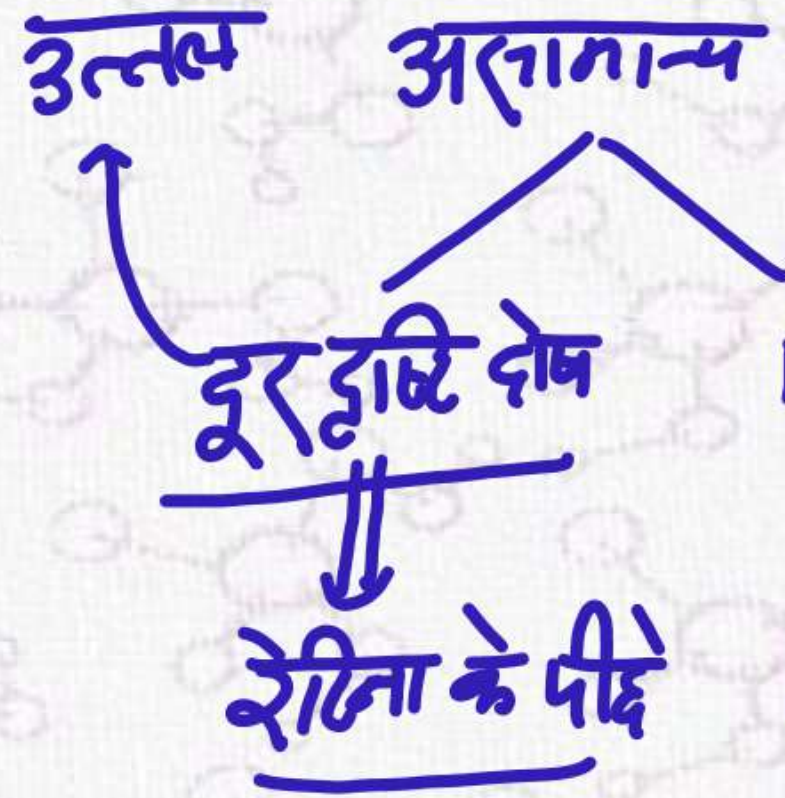 उत्तल असामान्य
दूर दृष्टि दोष
रेटिना के पीछे